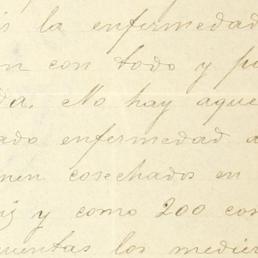 s la enfermedad
n con todo y po
da. No hay aque
ado enfermedad a
nen cosechados en
y como 200 con
uentas los medier